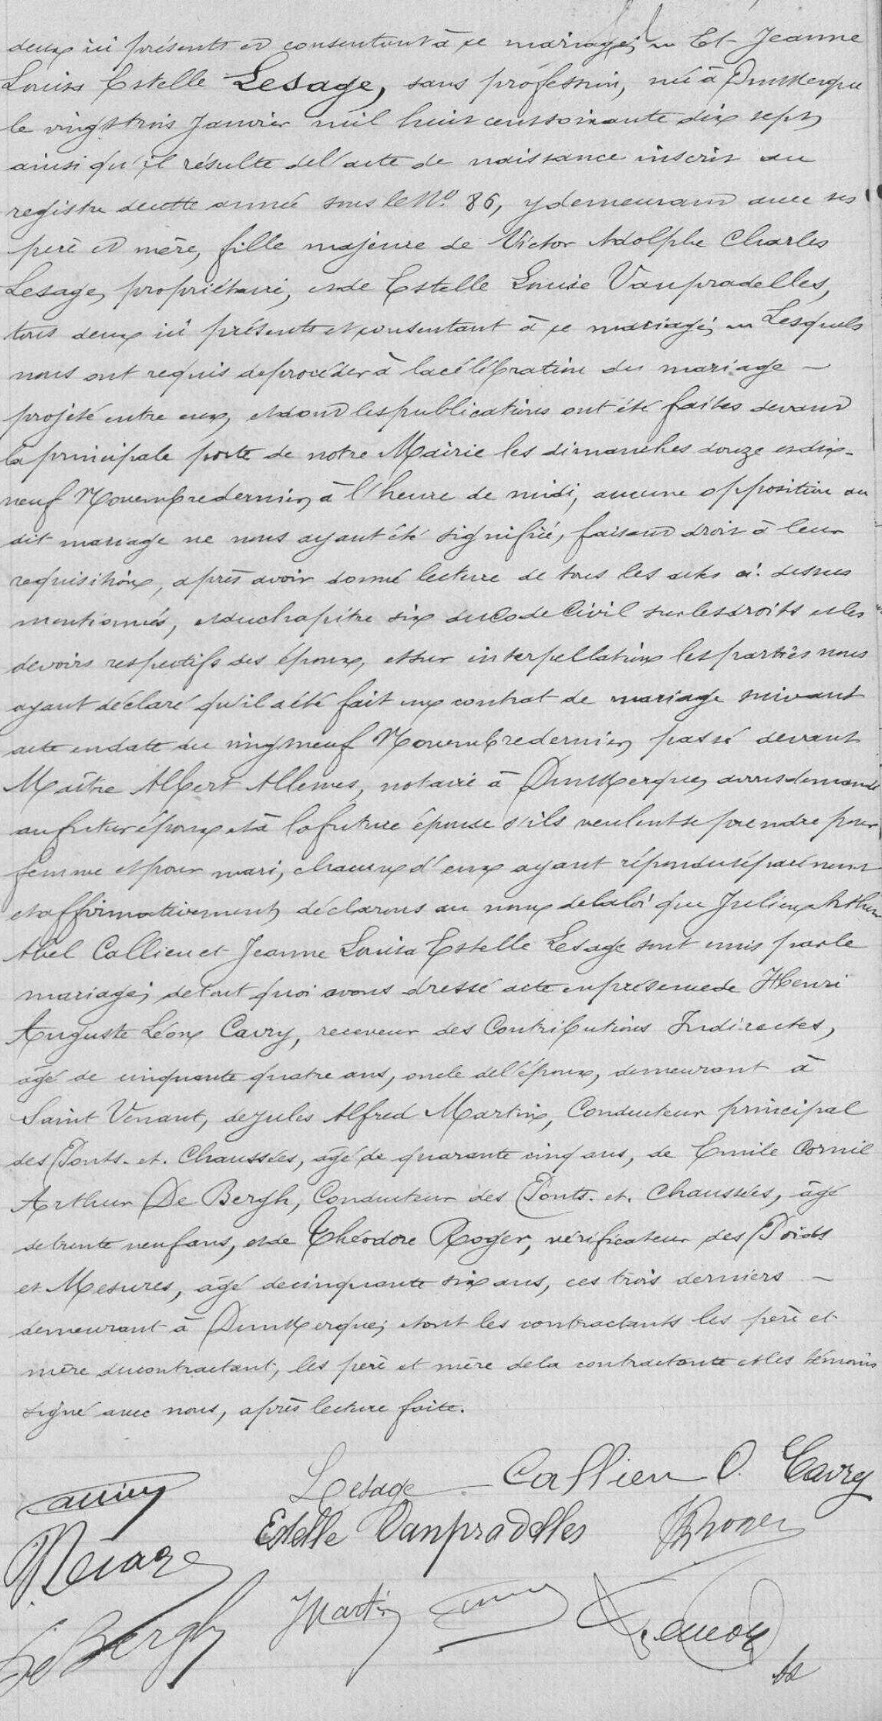 deux ici présents et consentant à ce mariage; Et Jeanne
Louisa Estelle Lesage, sans profession, née à Dunkerque
le vingt trois Janvier mil huit cent soixante dix sept,
ainsi qu'il résulte de l'acte de naissance inscrit au
registre de cette année sous le No. 86, y demeurant avec ses
père et mère, fille majeure de Victor Adolphe Charles
Lesage, propriétaire, et de Estelle Louise Vanpradelles,
tous deux ici présents et consentant à ce mariage; Lesquels
nous ont requis de procéder à la célébration du mariage —
projeté entre eux, et dont les publications ont été faites devant
la principale porte de notre Mairie les dimanches douze et dix-
neuf Novembre dernier, à l'heure de midi, aucune opposition au
dit mariage ne nous ayant été signifiée, faisant droit à leur
réquisition, après avoir donné lecture de tous les actes ci-dessus
mentionnés, et du chapitre six du Code Civil sur les droits et les
devoirs respectifs des époux, et sur interpellation les parties nous
ayant déclaré qu'il a été fait un contrat de mariage suivant
acte en date du vingt neuf Novembre dernier, passé devant
Maître Albert Allemes, notaire à Dunkerque, avons demandé
au futur époux et à la future épouse s'ils veulent se prendre pour
femme et pour mari, chacun d'eux ayant répondu séparément
et affirmativement, déclarons au nom de la loi que Julien Arthur
Abel Callieu et Jeanne Louisa Estelle Lesage sont unis par le
mariage; de tout quoi avons dressé acte en présence de Henri
Auguste Léon Cavry, receveur des Contributions Indirectes,
âgé de cinquante quatre ans, oncle de l'époux, demeurant à
Saint Venant, de Jules Alfred Martin, Conducteur principal
des Ponts-et-Chaussées, âgé de quarante cinq ans, de Emile Cornil
Arthur De Bergh, Conducteur des Ponts-et-Chaussées, âgé
de trente neuf ans, et de Théodore Roger, vérificateur des Poids
et Mesures, âgé de cinquante six ans, ces trois derniers —
demeurant à Dunkerque; et ont les contractants les père et
mère du contractant, les père et mère de la contractante et les témoins
signé avec nous, après lecture faite.
Lesage Callieu O. Cavry
Estelle Vanpradelles Roger
De Bergh Martin